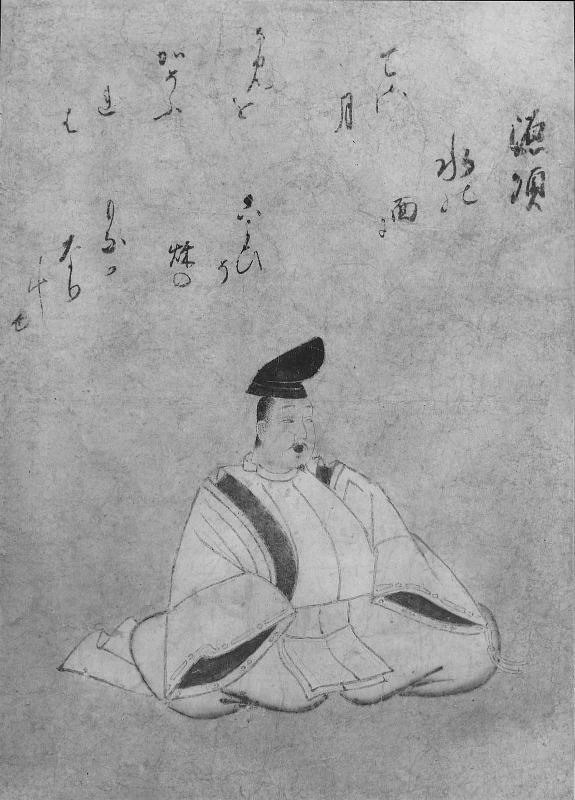 源順
水の
面に
てる
月
なみを
かそふ
れ
は
こよひ
そ
秋の
もなか
なり
ける